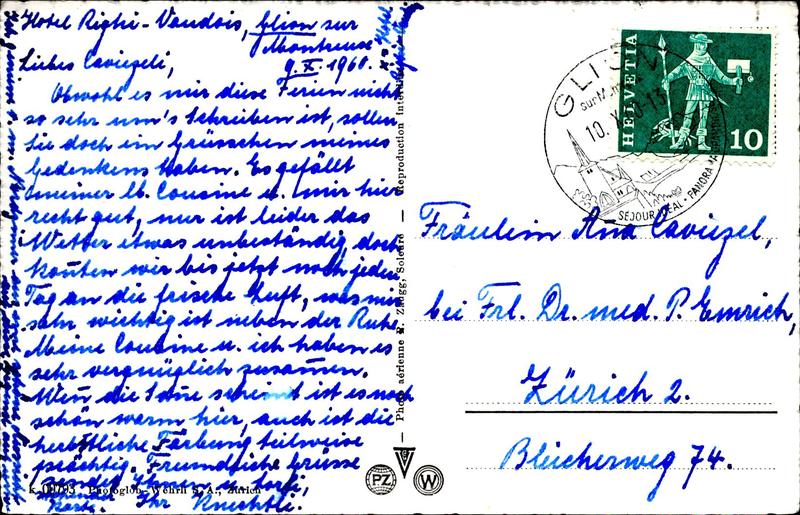 Hotel Righi-Vaudois, Glion sur
Montreux
9. X. 1960.
Liebes Caviezeli,
Obwohl es mir diese Ferien nicht
so sehr um's Schreiben ist, sollen
Sie doch ein Grüsschen meines
Gedenkens haben. Es gefällt
meiner lb. Cousine u. mir hier
recht gut, nur ist leider das
Wetter etwas unbeständig, doch
konnten wir bis jetzt noch jeden
Tag an die frische Luft, was mir
sehr wichtig ist neben der Ruhe.
Meine Cousine u. ich haben es
sehr vergnüglich zusammen.
Wenn die Sonne scheint ist es noch
schön warm hier, auch ist die
herbstliche Färbung teilweise
prächtig. Freundliche Grüsse
sendet Ihnen u.
Ihr Knechtli.
K 00793 Photoglob-Wehrli S.A., Zürich
Photo aérienne W. Zaugg, Soleure — Reproduction interdite
PZ
W
HELVETIA
10
GLION
sur Montreux
10. X. 60-13
SÉJOUR IDÉAL - PANORAMA
Fräulein Ana Caviezel,
bei Frl. Dr. med. P. Emrich,
Zürich 2.
Bleicherweg 74.